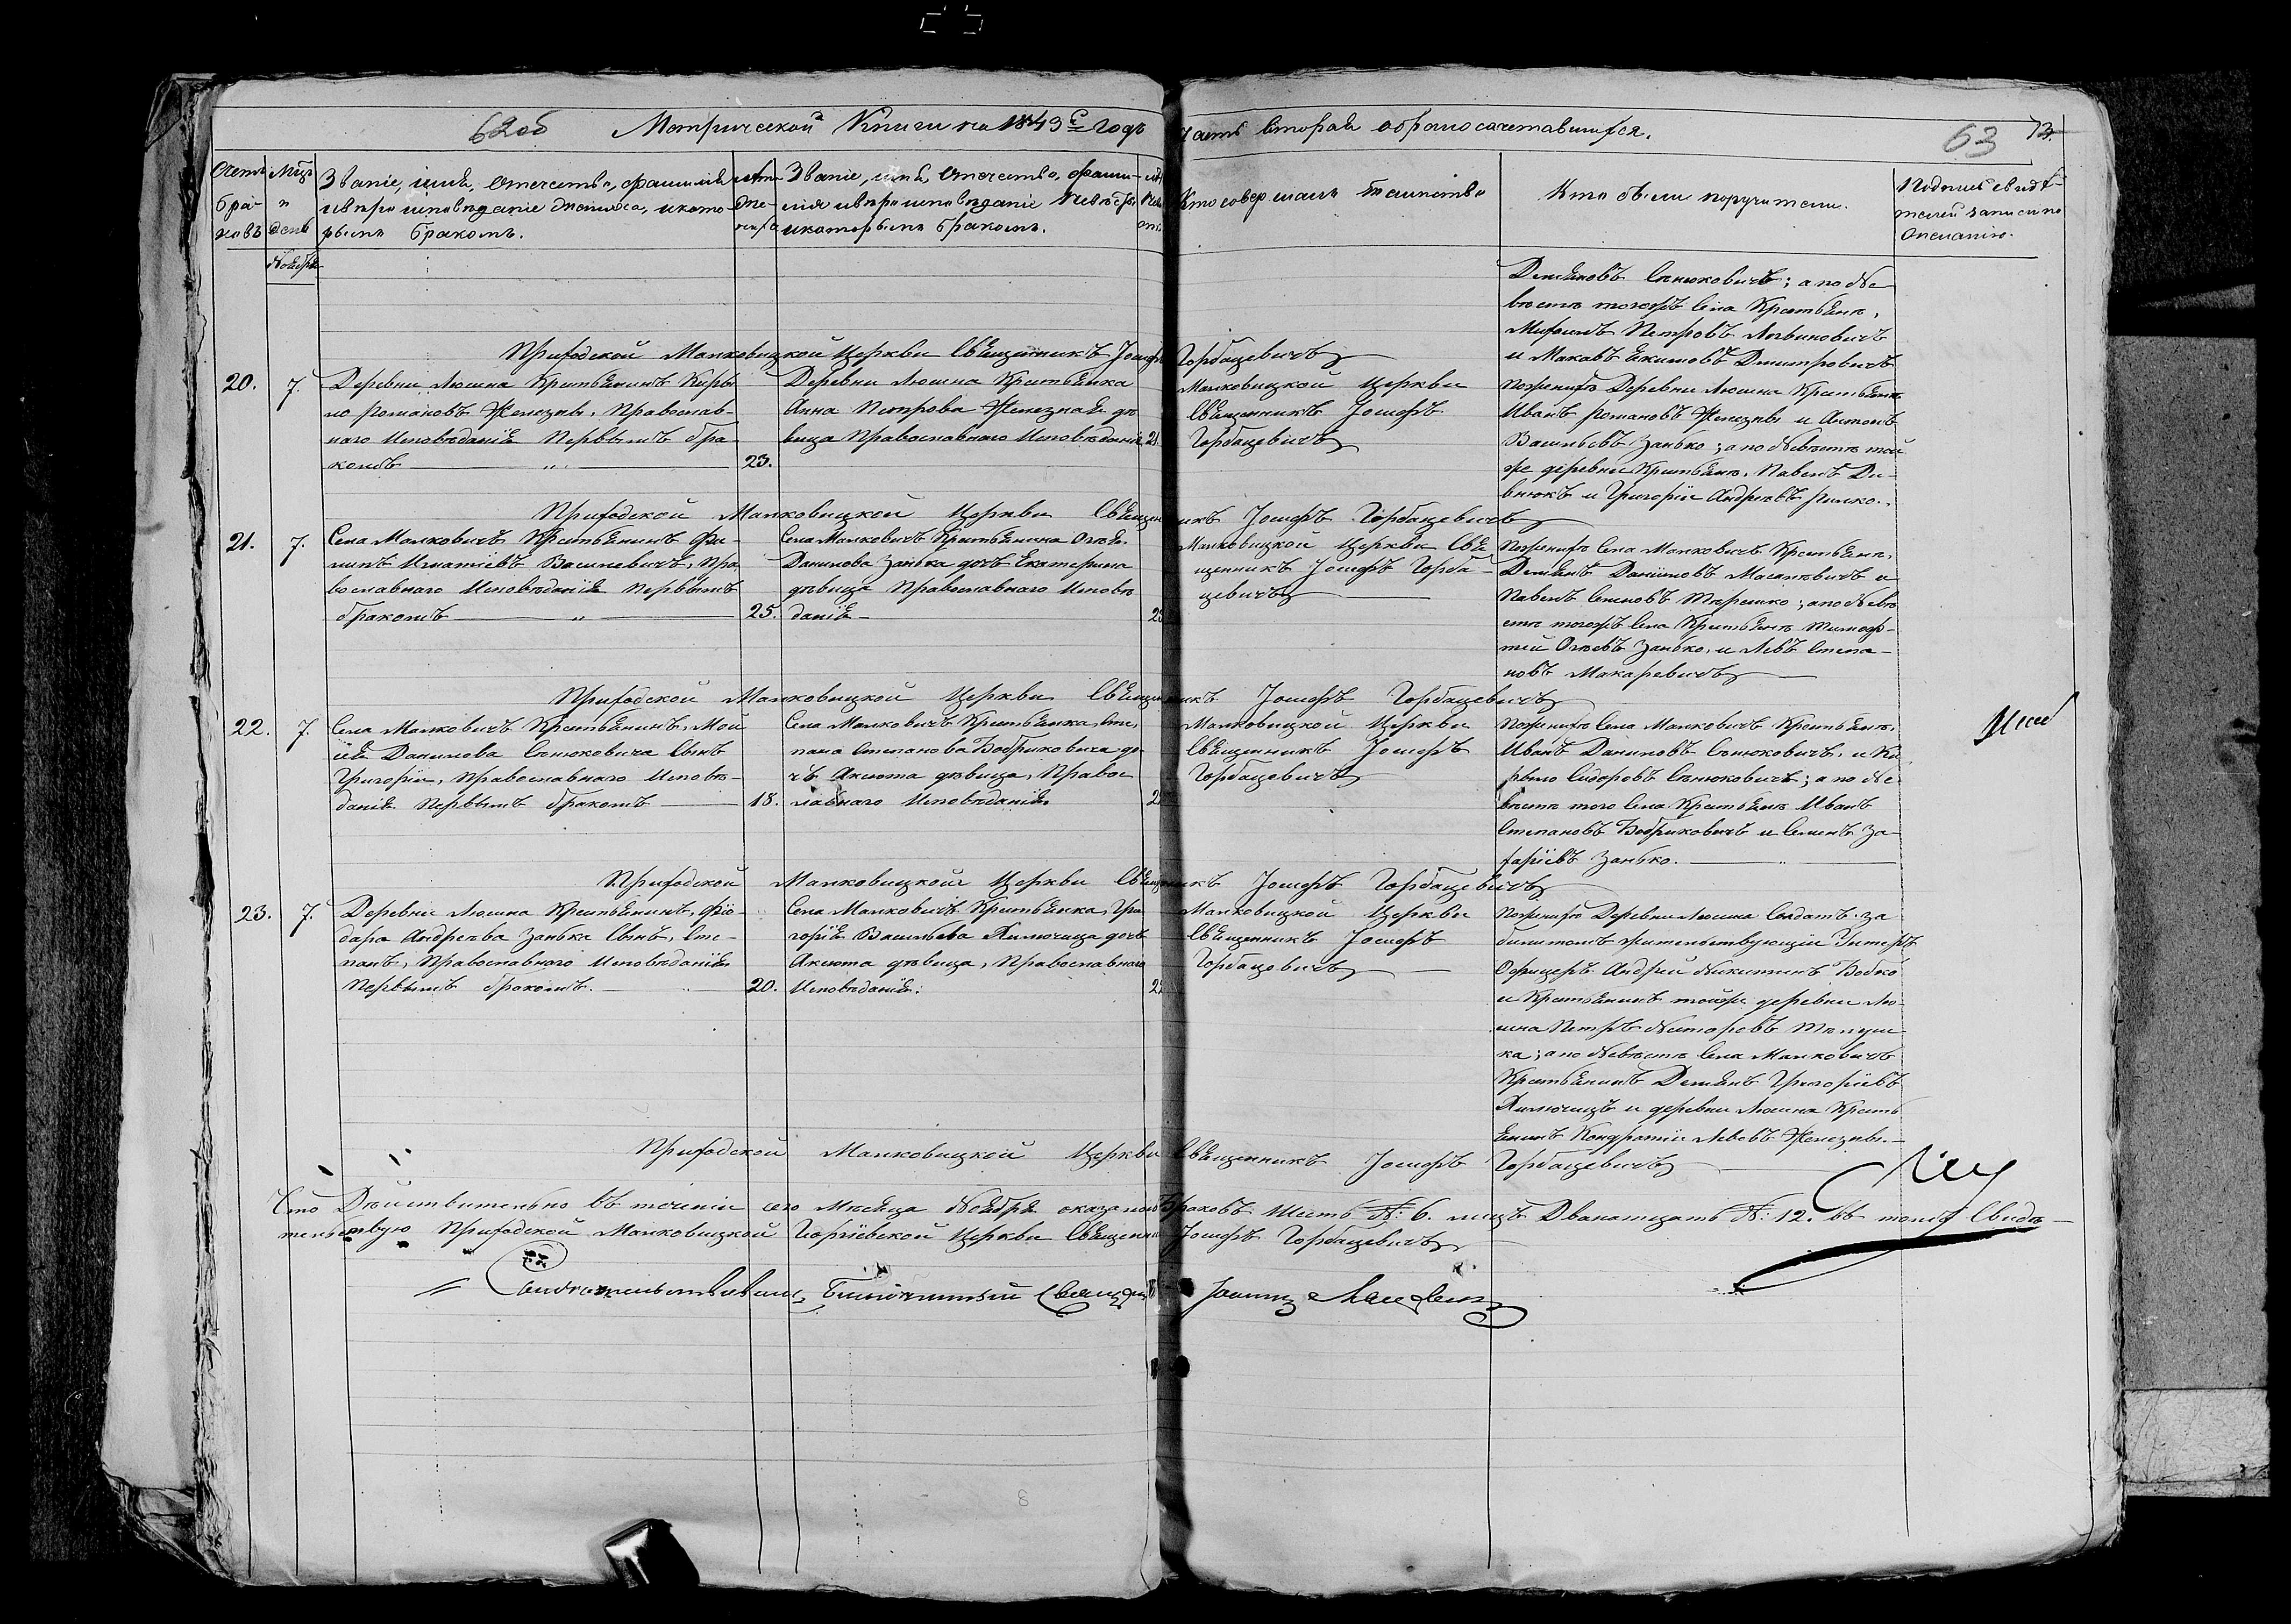 62об Метрической Книги на 1843й Годъ часть вторая о бракосочетавшихся. 63
Счетъ браковъ
Мцъ и день
Званіе, имя, отечество, фамилія и вѣроисповѣданіе жениха, и которымъ бракомъ.
Лѣта жениха
Званіе, имя, отечество, фамилія и вѣроисповѣданіе невѣсты и которымъ бракомъ.
Кто совершалъ таинство
Кто были поручители.
Подпись свидѣтелей записи по
Ноября
Демяновъ Сѣнюковичъ; а по Не
вѣстѣ тогожъ Села Крестьяне,
Петровъ Логвиновичъ
и Екимовъ Дмитровичъ
Приходской Малковицкой Церкви Священникъ Іосифъ Горбацевичъ
20.
7.
Деревни Люшна Крестьянинъ Киры
ло Романовъ Железны, Православ-
наго Исповѣданія Первымъ бра
комъ
23.
Деревни Люшна Крестьянка
Анна Петрова Железная дѣ
вица Православнаго Исповѣданія
21.
Малковицкой Церкви
Священникъ Іосифъ
Горбацевичъ
По женихѣ Деревни Люшна Крестьяне
Иванъ Романовъ Железны и Антонъ
Васильевъ Занько; а по Невѣстѣ той
же деревни Крестьяне, Павелъ
и Григорій Андреевъ
Приходской Малковицкой Церкви Священникъ Іосифъ Горбацевичъ
21.
7.
Села Малковичъ Крестьянинъ Фи-
липъ Игнатіевъ Василевичъ, Пра
вославнаго Исповѣданія Первымъ
бракомъ
25.
Села Малковичъ Крестьянина
Данилова Занька дочь Екатерина
дѣвица Православнаго Исповѣ
данія
Малковицкой Церкви Свя
щенникъ Іосифъ Горба-
цевичъ
По женихѣ Села Малковичъ Крестьяне,
Демянъ Даниловъ и
Павелъ Семновъ; а по Невѣ
стѣ тогожъ Села Крестьяне Тимоф-
тей Занько, и Левъ Степа-
новъ Макаревичъ
Приходской Малковицкой Церкви Священникъ Іосифъ Горбацевичъ
22.
7.
Села Малковичъ Крестьянинъ, Мои
сѣя Данилова Сѣнюковича Сынъ
Григорій, Православнаго Исповѣ-
данія Первымъ бракомъ
18.
Села Малковичъ Крестьянка, Сте
пана Степанова Бобриковича до
чь Аксюта дѣвица, Правос
лавнаго Исповѣданія
Малковицкой Церкви
Священникъ Іосифъ
Горбацевичъ
По женихѣ Села Малковичъ Крестьяне,
Иванъ Даниловъ Сѣнюковичъ, и Ки
рыло Сидоровъ Сѣнюковичъ; а по Не
вѣстѣ того Села Крестьяне Иванъ
Степановъ Бобриковичъ и Семенъ За
харіевъ Занько.
Приходской Малковицкой Церкви Священникъ Іосифъ Горбацевичъ
23.
7.
Деревни Люшна Крестьянинъ, Фіо-
дара Андреева Занька Сынъ, Сте-
панъ, Православнаго Исповѣданія
Первымъ бракомъ.
20.
Села Малковичъ Крестьянка, Гри
горія Васильева дочь
Аксюта дѣвица, Православнаго
Исповѣданія.
Малковицкой Церкви
Священникъ Іосифъ
Горбацевичъ
По женихѣ Деревни Люшна Солдатъ за
билетомъ жительствующій Унтеръ
Офицеръ Андрей Никитинъ Бобко
и Крестьянинъ тойже деревни Лю-
шна Петръ
ка; а по Невѣстѣ Села Малковичъ
Крестьянинъ Демянъ Григоріевъ
и деревни Люшна Кресть
янинъ Кондратій Левовъ Железны.
Приходской Малковицкой Церкви Священникъ Іосифъ Горбацевичъ
Что Дѣйствительно въ теченіи сего Мѣсяца Ноября оказалось Браковъ Шесть №: 6. лицъ Дванатцать №: 12. въ томъ Свидѣ-
тельствую Приходской Малковицкой Георгіевской Церкви Священникъ Іосифъ Горбацевичъ
Свидѣтельствовалъ Благочинный Священникъ Іоаннъ